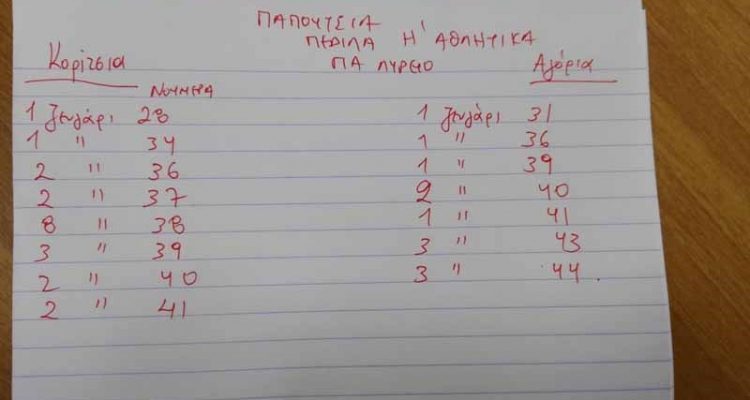 ΠΑΠΟΥΤΣΙΑ
ΠΕΔΙΛΑ Η' ΑΘΛΗΤΙΚΑ
ΓΙΑ ΑΥΡΙΟ
Κορίτσια
ΝΟΥΜΕΡΑ
1 Ζευγάρι 28
1 " 34
2 " 36
2 " 37
8 " 38
3 " 39
2 " 40
2 " 41
Αγόρια
1 Ζευγάρι 31
1 " 36
1 " 39
2 " 40
1 " 41
3 " 43
3 " 44